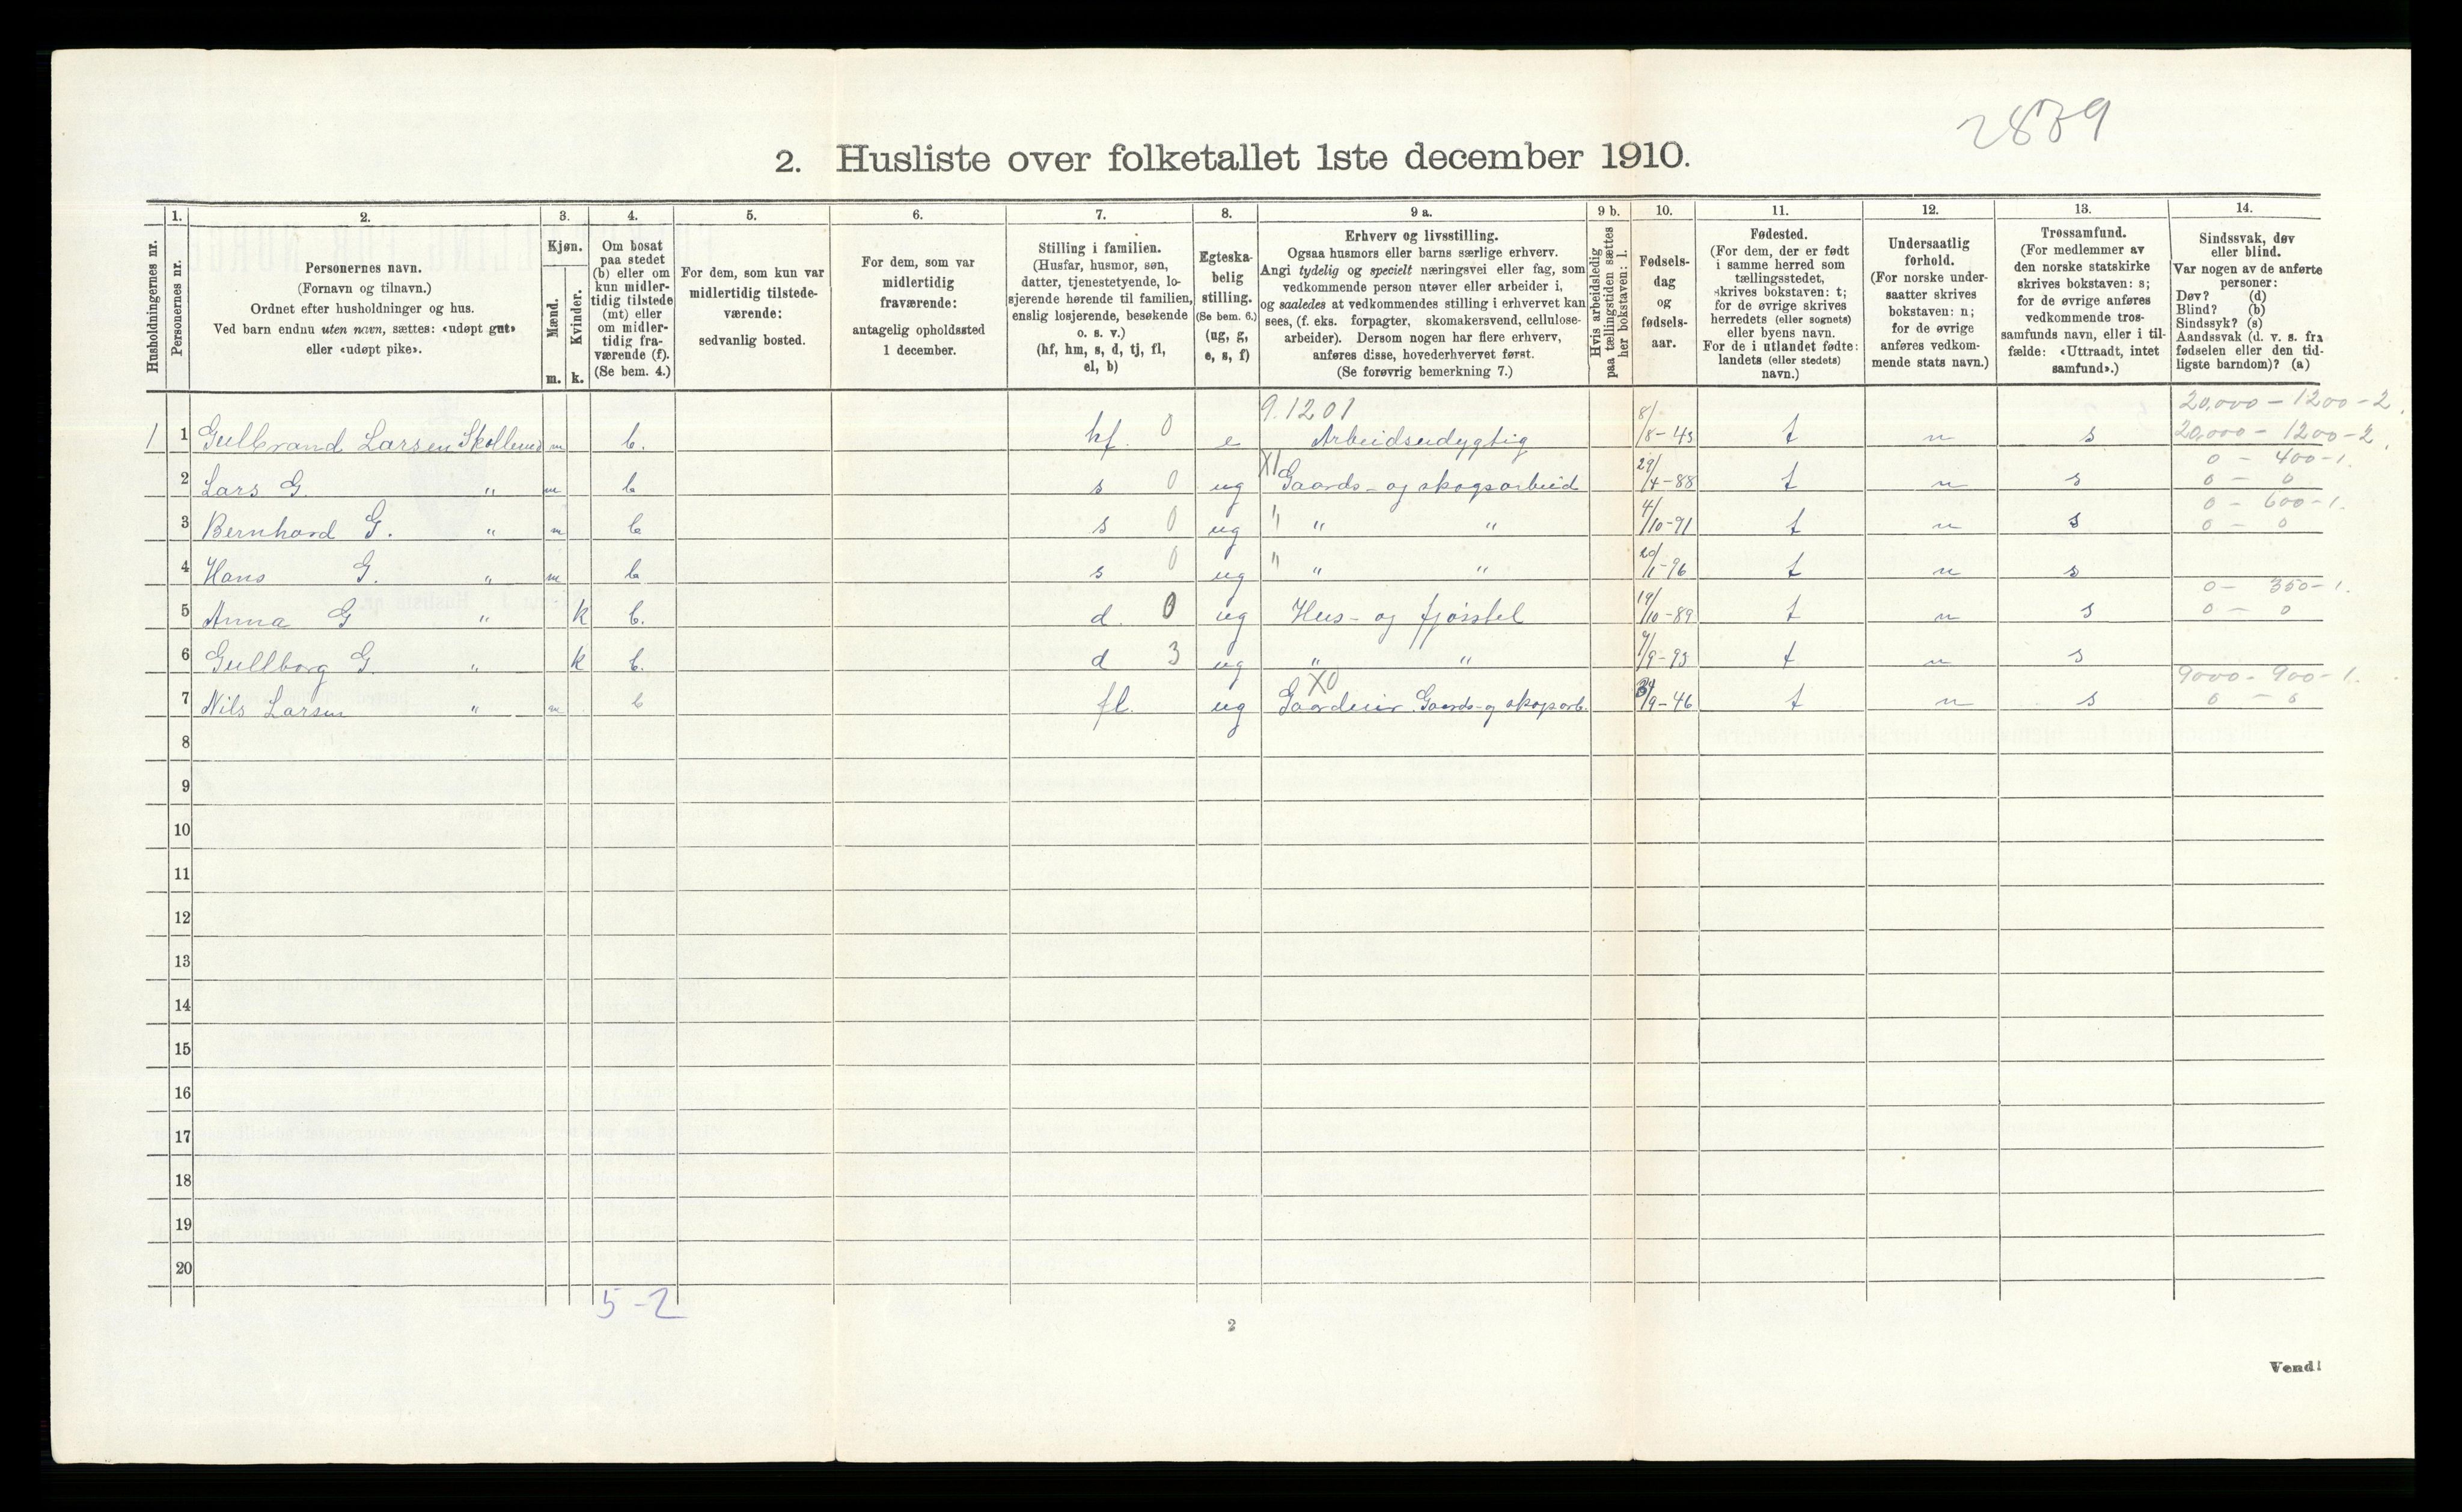 2839
2. Husliste over folketallet 1ste december 1910.
Husholdningernes nr.
1.
Personernes nr.
2.
Personernes navn.
(Fornavn og tilnavn.)
Ordnet efter husholdninger og hus.
Ved barn endnu uten navn, sættes: «udøpt gut»
eller «udøpt pike».
3.
Kjøn.
Mænd.
Kvinder.
m. k.
4.
Om bosat
paa stedet
(b) eller om
kun midler-
tidig tilstede
(mt) eller
om midler-
tidig fra-
værende (f).
(Se bem. 4.)
5.
For dem, som kun var
midlertidig tilstede-
værende:
sedvanlig bosted.
6.
For dem, som var
midlertidig
fraværende:
antagelig opholdssted
1 december.
7.
Stilling i familien.
(Husfar, husmor, søn,
datter, tjenestetyende, lo-
sjerende hørende til familien,
enslig losjerende, besøkende
o. s. v.)
(hf, hm, s, d, tj, fl,
el, b)
8.
Egteska-
belig
stilling.
(Se bem. 6.)
(ug, g,
e, s, f)
9 a.
Erhverv og livsstilling.
Ogsaa husmors eller barns særlige erhverv.
Angi tydelig og specielt næringsvei eller fag, som
vedkommende person utøver eller arbeider i,
og saaledes at vedkommendes stilling i erhvervet kan
sees, (f. eks. forpagter, skomakersvend, cellulose-
arbeider). Dersom nogen har flere erhverv,
anføres disse, hovederhvervet først.
(Se forøvrig bemerkning 7.)
9 b.
Hvis arbeidsledig
paa tællingstiden sættes
her bokstaven: l.
10.
Fødsels-
dag
og
fødsels-
aar.
11.
Fødested.
(For dem, der er født
i samme herred som
tællingsstedet,
skrives bokstaven: t;
for de øvrige skrives
herredets (eller sognets)
eller byens navn.
For de i utlandet fødte:
landets (eller stedets)
navn.)
12.
Undersaatlig
forhold.
(For norske under-
saatter skrives
bokstaven: n;
for de øvrige
anføres vedkom-
mende stats navn.)
13.
Trossamfund.
(For medlemmer av
den norske statskirke
skrives bokstaven: s;
for de øvrige anføres
vedkommende tros-
samfunds navn, eller i til-
fælde: «Uttraadt, intet
samfund».)
14.
Sindssvak, døv
eller blind.
Var nogen av de anførte
personer:
Døv? (d)
Blind? (b)
Sindssyk? (s)
Aandssvak (d. v. s. fra
fødselen eller den tid-
ligste barndom)? (a)
9.1201 20,000 - 1200 - 2.
1 1 Gulbrand Larsen Skollerud m b. hf. 0 e Arbeidsudygtig 8/8-43 t n s 20,000 - 1200 - 2.
0 - 400 - 1.
2 Lars G. " m b s 0 ug X1 Gaards- og skogsarbeid 29/4-88 t n s 0 - 0
0 - 600 - 1.
3 Bernhard G. " m b s 0 ug " " " 4/10-91 t n s 0 - 0
4 Hans G. " m b s 0 ug " " " 20/1-96 t n s
0 - 350 - 1.
5 Anna G " k b. d. 0 ug Hus- og fjøsstel 19/10-89 t n s 0 - 0
6 Gullborg G. " k b. d 3 ug " " 9/9-93 t n s
X0 9000 - 900 - 1.
7 Nils Larsen " m b fl. ug Gaardeier. Gaards- og skogsarb. /9-46 t n s 0 - 0
8
9
10
11
12
13
14
15
16
17
18
19
20
5-2
2
Vend!